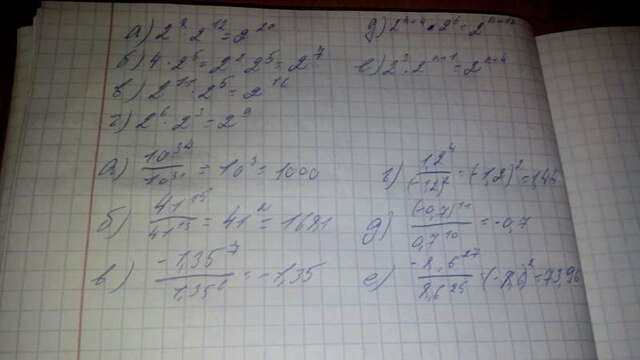 а) 2⁸ · 2¹² = 2²⁰
б) 4 · 2⁵ = 2² 2⁵ = 2⁷
в) 2¹¹ · 2⁵ = 2¹⁶
г) 2⁶ · 2³ = 2⁹
д) 2ⁿ⁺⁴ · 2⁶ = 2ⁿ⁺¹⁰
е) 2³ · 2ⁿ⁺¹ = 2ⁿ⁺⁴
а) 10³⁴/10³¹ = 10³ = 1000
б) 41¹⁵/41¹³ = 41² = 1681
в) -1,35⁷/1,35⁶ = -1,35
= (-1,2)² = 1,44
д) (-0,7)¹¹/0,7¹⁰ = -0,7
е) -8,6²⁷/8,6²⁵ = (-8,6)² = 73,96